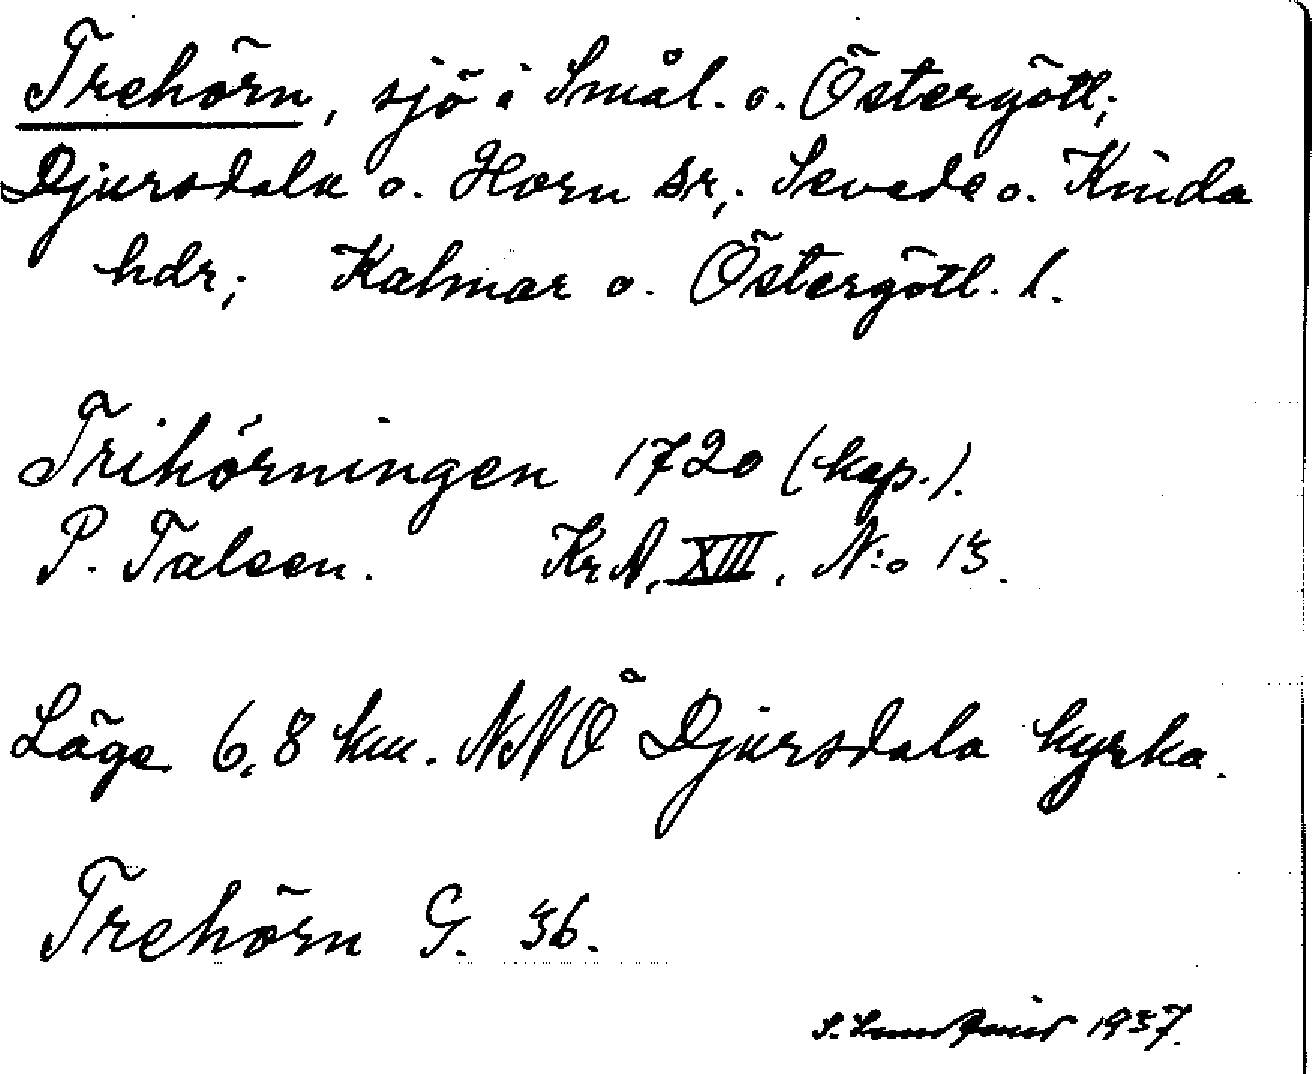 Trehörn, sjö i Smål. o. Östergötl;
Djursdala o. Horn sr; Sevede o. Kinda
hdr; Kalmar o. Östergötl. l.
Trihörningen 1720 (kop.).
P. Talsen. Kr. A. XIII. N:o 13.
Läge 6,8 km. NNO Djursdala kyrka.
Trehörn G. 36.
1937.